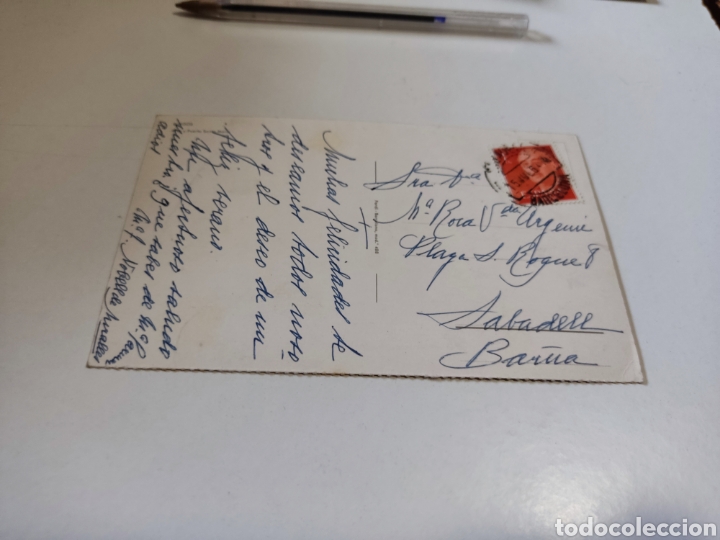 Muchas felicidades te
deseamos todos noso
tros y el deseo de un
feliz verano.
Un afectuoso saludo
que sabes de
Sra Dña
Mª Rosa Vda Argemí
Plaza S. Roque 8
Sabadell
Barna
todocoleccion